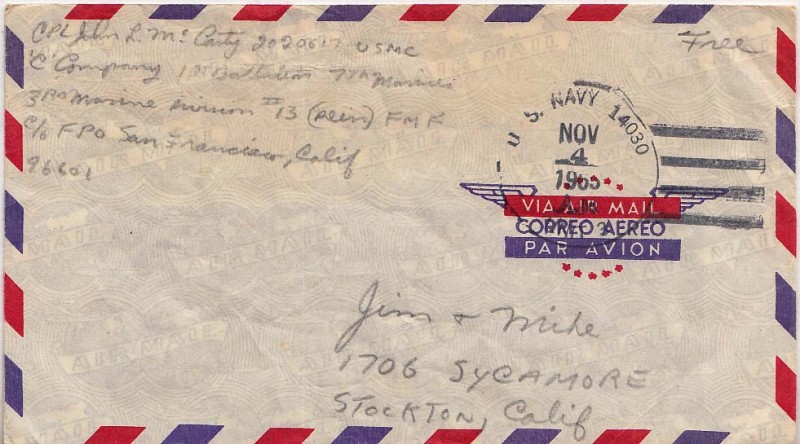 CPL John L. Mc Carty 2020617 USMC
"C" Company 1st Battalion 7th Marines
3RD Marine Division (Rein) FMF
C/o FPO San Francisco, Calif
96601
Free
U.S. NAVY 14030
NOV
4
1965
AIR
VIA AIR MAIL
CORREO AEREO
PAR AVION
Jim & Mike
1706 SYCAMORE
STOCKTON, Calif